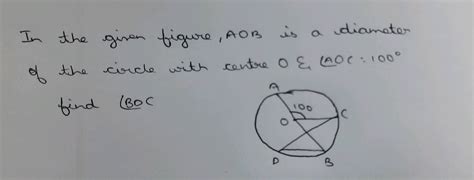 In the given figure, AOB is a diameter
of the circle with centre O & ∠AOC = 100°
find ∠BOC
A
100
O
C
D
B